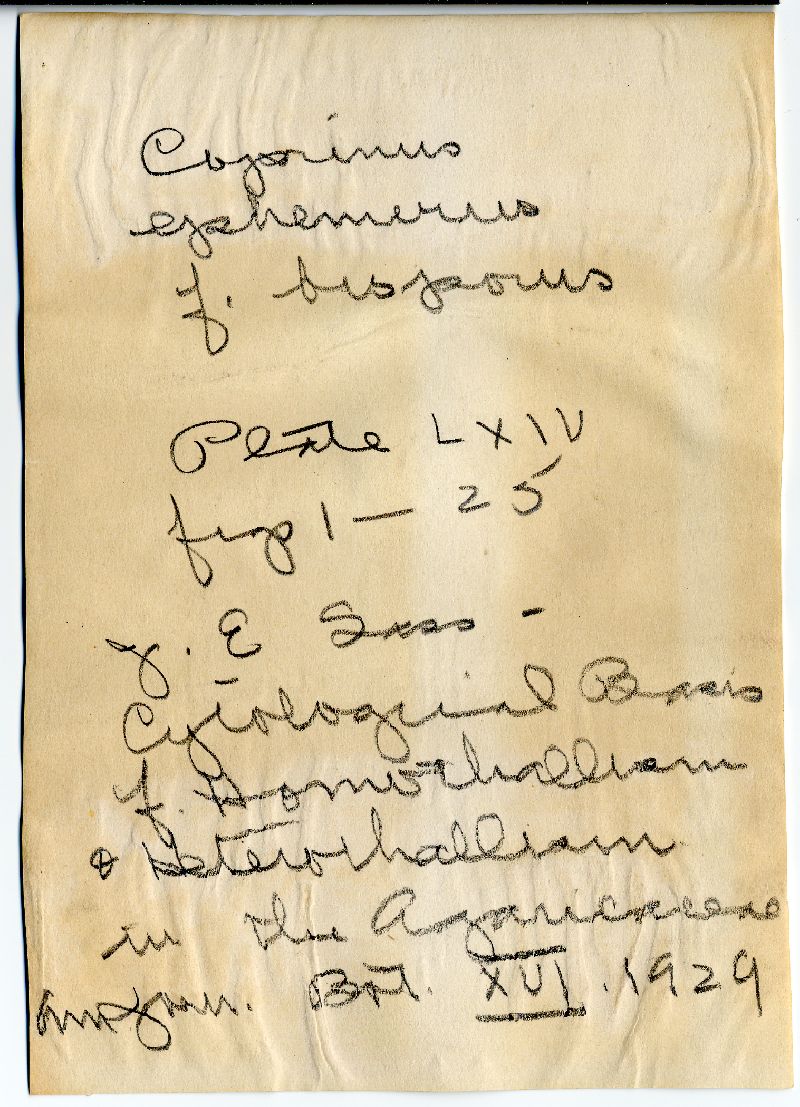 Coprinus
ephemerus
f. bisporus
Plate LXIV
figs 1 — 25
J. E Sass -
Cytological Basis
of Homothallium
& Heterothallium
in the Agaricaceae
Am Jour. Bot. XVI. 1929